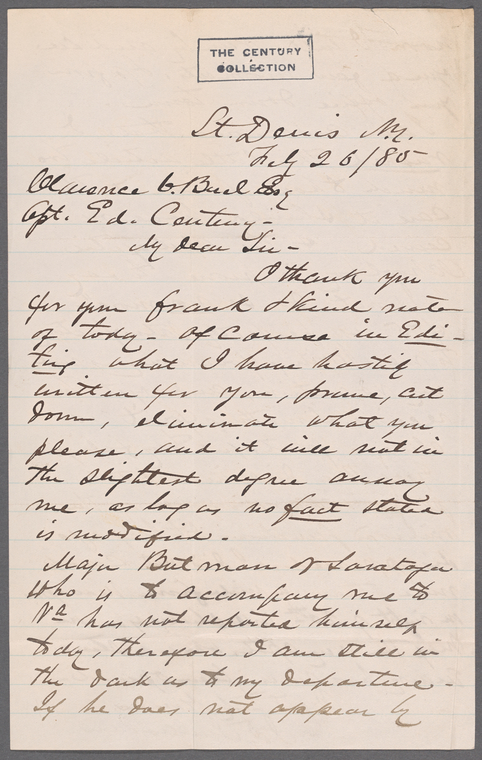 THE CENTURY
COLLECTION
St. Denis N.Y.
Feby 26/85
Clarence C. Buel Esq
Ed. Century -
My dear Sir -
I thank you
for your frank & kind note
of today - Of course in Edi-
ting what I have hastily
written for you, prune, cut
down, eliminate what you
please, and it will not in
the slightest degree annoy
me, as long as no fact stated
is modified.
Major Butman of Saratoga
who is to accompany me to
Va has not reported himself
today, therefore I am still in
the dark as to my departure -
If he does not appear by